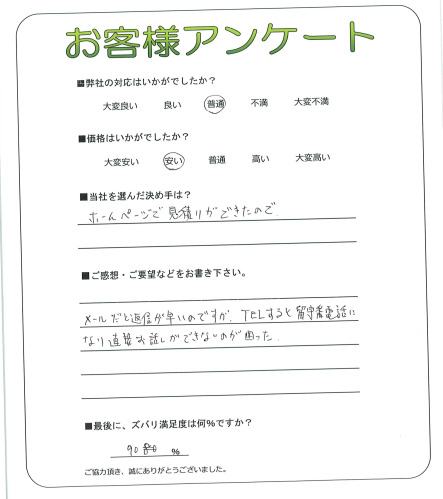 お客様アンケート
■弊社の対応はいかがでしたか？
大変良い 良い 普通 不満 大変不満
■価格はいかがでしたか？
大変安い 安い 普通 高い 大変高い
■当社を選んだ決め手は？
ホームページで見積りができたので.
■ご感想・ご要望などをお書き下さい。
メールだと返信が早いのですが、TELすると留守番電話に
なり直接お話しができないのが困った.
■最後に、ズバリ満足度は何％ですか？
90 %
ご協力頂き、誠にありがとうございました。